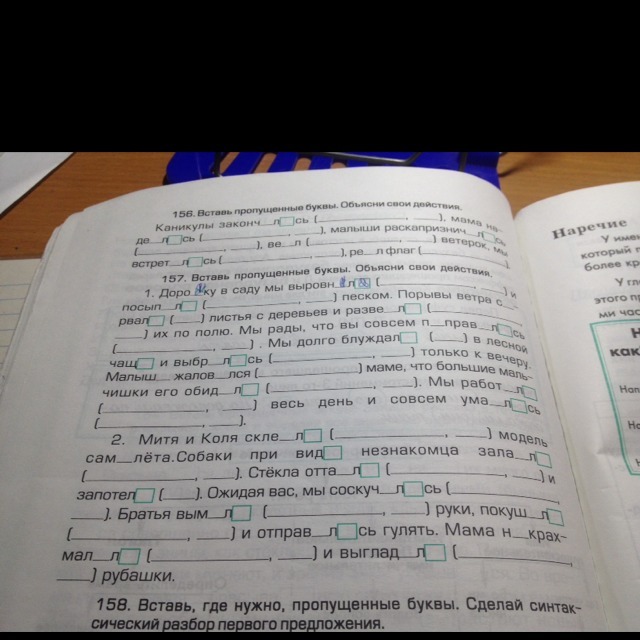 156. Вставь пропущенные буквы. Объясни свои действия.
Каникулы законч__л□сь (________, ___), мама на-
де__л□сь (________, ___), малыши раскапризнич__л□сь
(________, ___), ве__л (________, ___) ветерок, мы
встрет__л□сь (________, ___), ре__л флаг (________, ___).
157. Вставь пропущенные буквы. Объясни свои действия.
1. Доро__ку в саду мы выровн__л□ (________, ___) и
посып__л□ (________, ___) песком. Порывы ветра с__-
рвал□ (___) листья с деревьев и разве__л□ (________,
___) их по полю. Мы рады, что вы совсем п__прав__л□сь
(________, ___). Мы долго блуждал□ (___) в лесной
чащ□ и выбр__л□сь (________, ___) только к вечеру.
Малыш__ жалов__лся (________, ___) маме, что большие маль-
чишки его обид__л□ (________, ___). Мы работ__л□
(________, ___) весь день и совсем ума__л□сь
(________, ___).
2. Митя и Коля скле__л□ (________, ___) модель
сам__лёта.Собаки при вид□ незнакомца зала__л□
(________, ___). Стёкла отта__л□ (________, ___) и
запотел□ (___). Ожидая вас, мы соскуч__л□сь (________,
___). Братья вым__л□ (________, ___) руки, покуш__л□
(________, ___) и отправ__л□сь гулять. Мама н__крах-
мал__л□ (________, ___) и выглад__л□ (________,
___) рубашки.
158. Вставь, где нужно, пропущенные буквы. Сделай синтак-
сический разбор первого предложения.
Наречие
У имен
который п
более кра
У гл
этого п
ми час
Н
как
Нап
На
Н